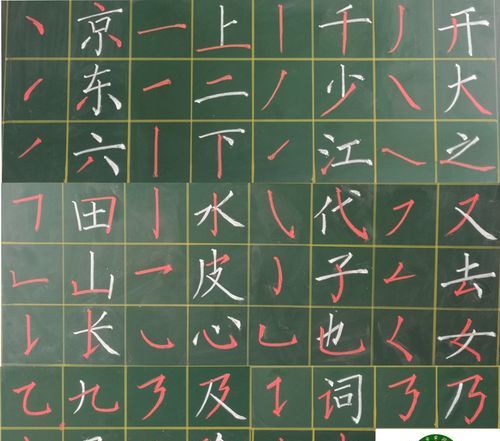 丶 京 一 上 丨 千 丿 开
㇒ 东 ㇀ 二 丿 少 ㇏ 大
㇒ 六 丨 下 ㇀ 江 ㇏ 之
𠃍 田 亅 水 ㇂ 代 ㇇ 又
𠃊 山 乛 皮 ㇁ 子 𠃋 去
𠄌 长 ㇃ 心 乚 也 𡿨 女
乙 九 ㇋ 及 ㇊ 词 𠄎 乃